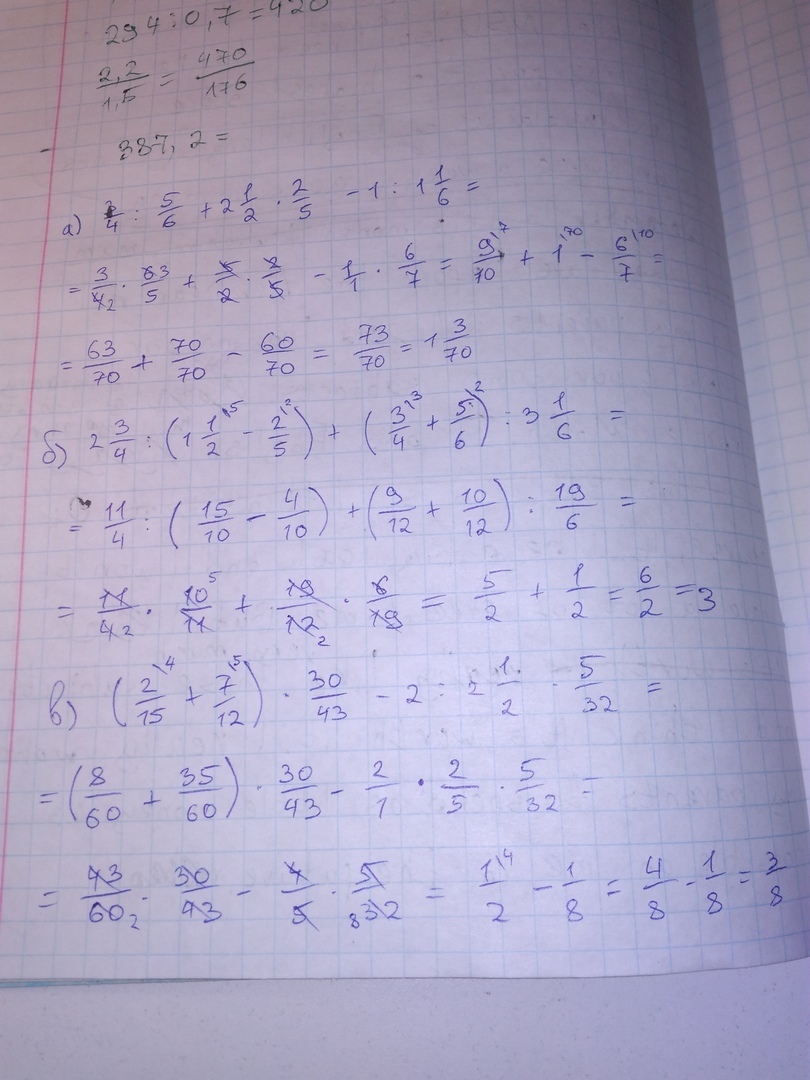 294 : 0,7 = 420
2,2/1,5 = 470/176
387,2 =
а) 3/4 : 5/6 + 2 1/2 · 2/5 - 1 : 1 1/6 =
= 3/4 2 · 6 3/5 + 5/2 · 2/5 - 1/1 · 6/7 = 9\7/70 + 1\70 - 6\10/7 =
= 63/70 + 70/70 - 60/70 = 73/70 = 1 3/70
б) 2 3/4 : (1 1\5/2 - 2\2/5) + (3\3/4 + 5\2/6) : 3 1/6 =
= 11/4 : (15/10 - 4/10) + (9/12 + 10/12) : 19/6 =
= 11/4 2 · 10 5/11 + 19/12 2 · 6/19 = 5/2 + 1/2 = 6/2 = 3
в) (2\4/15 + 7\5/12) · 30/43 - 2 : 2 1/2 · 5/32 =
= (8/60 + 35/60) · 30/43 - 2/1 · 2/5 · 5/32 =
= 43/60 2 · 30/43 - 4/5 · 5/8 32 = 1\4/2 - 1/8 = 4/8 - 1/8 = 3/8